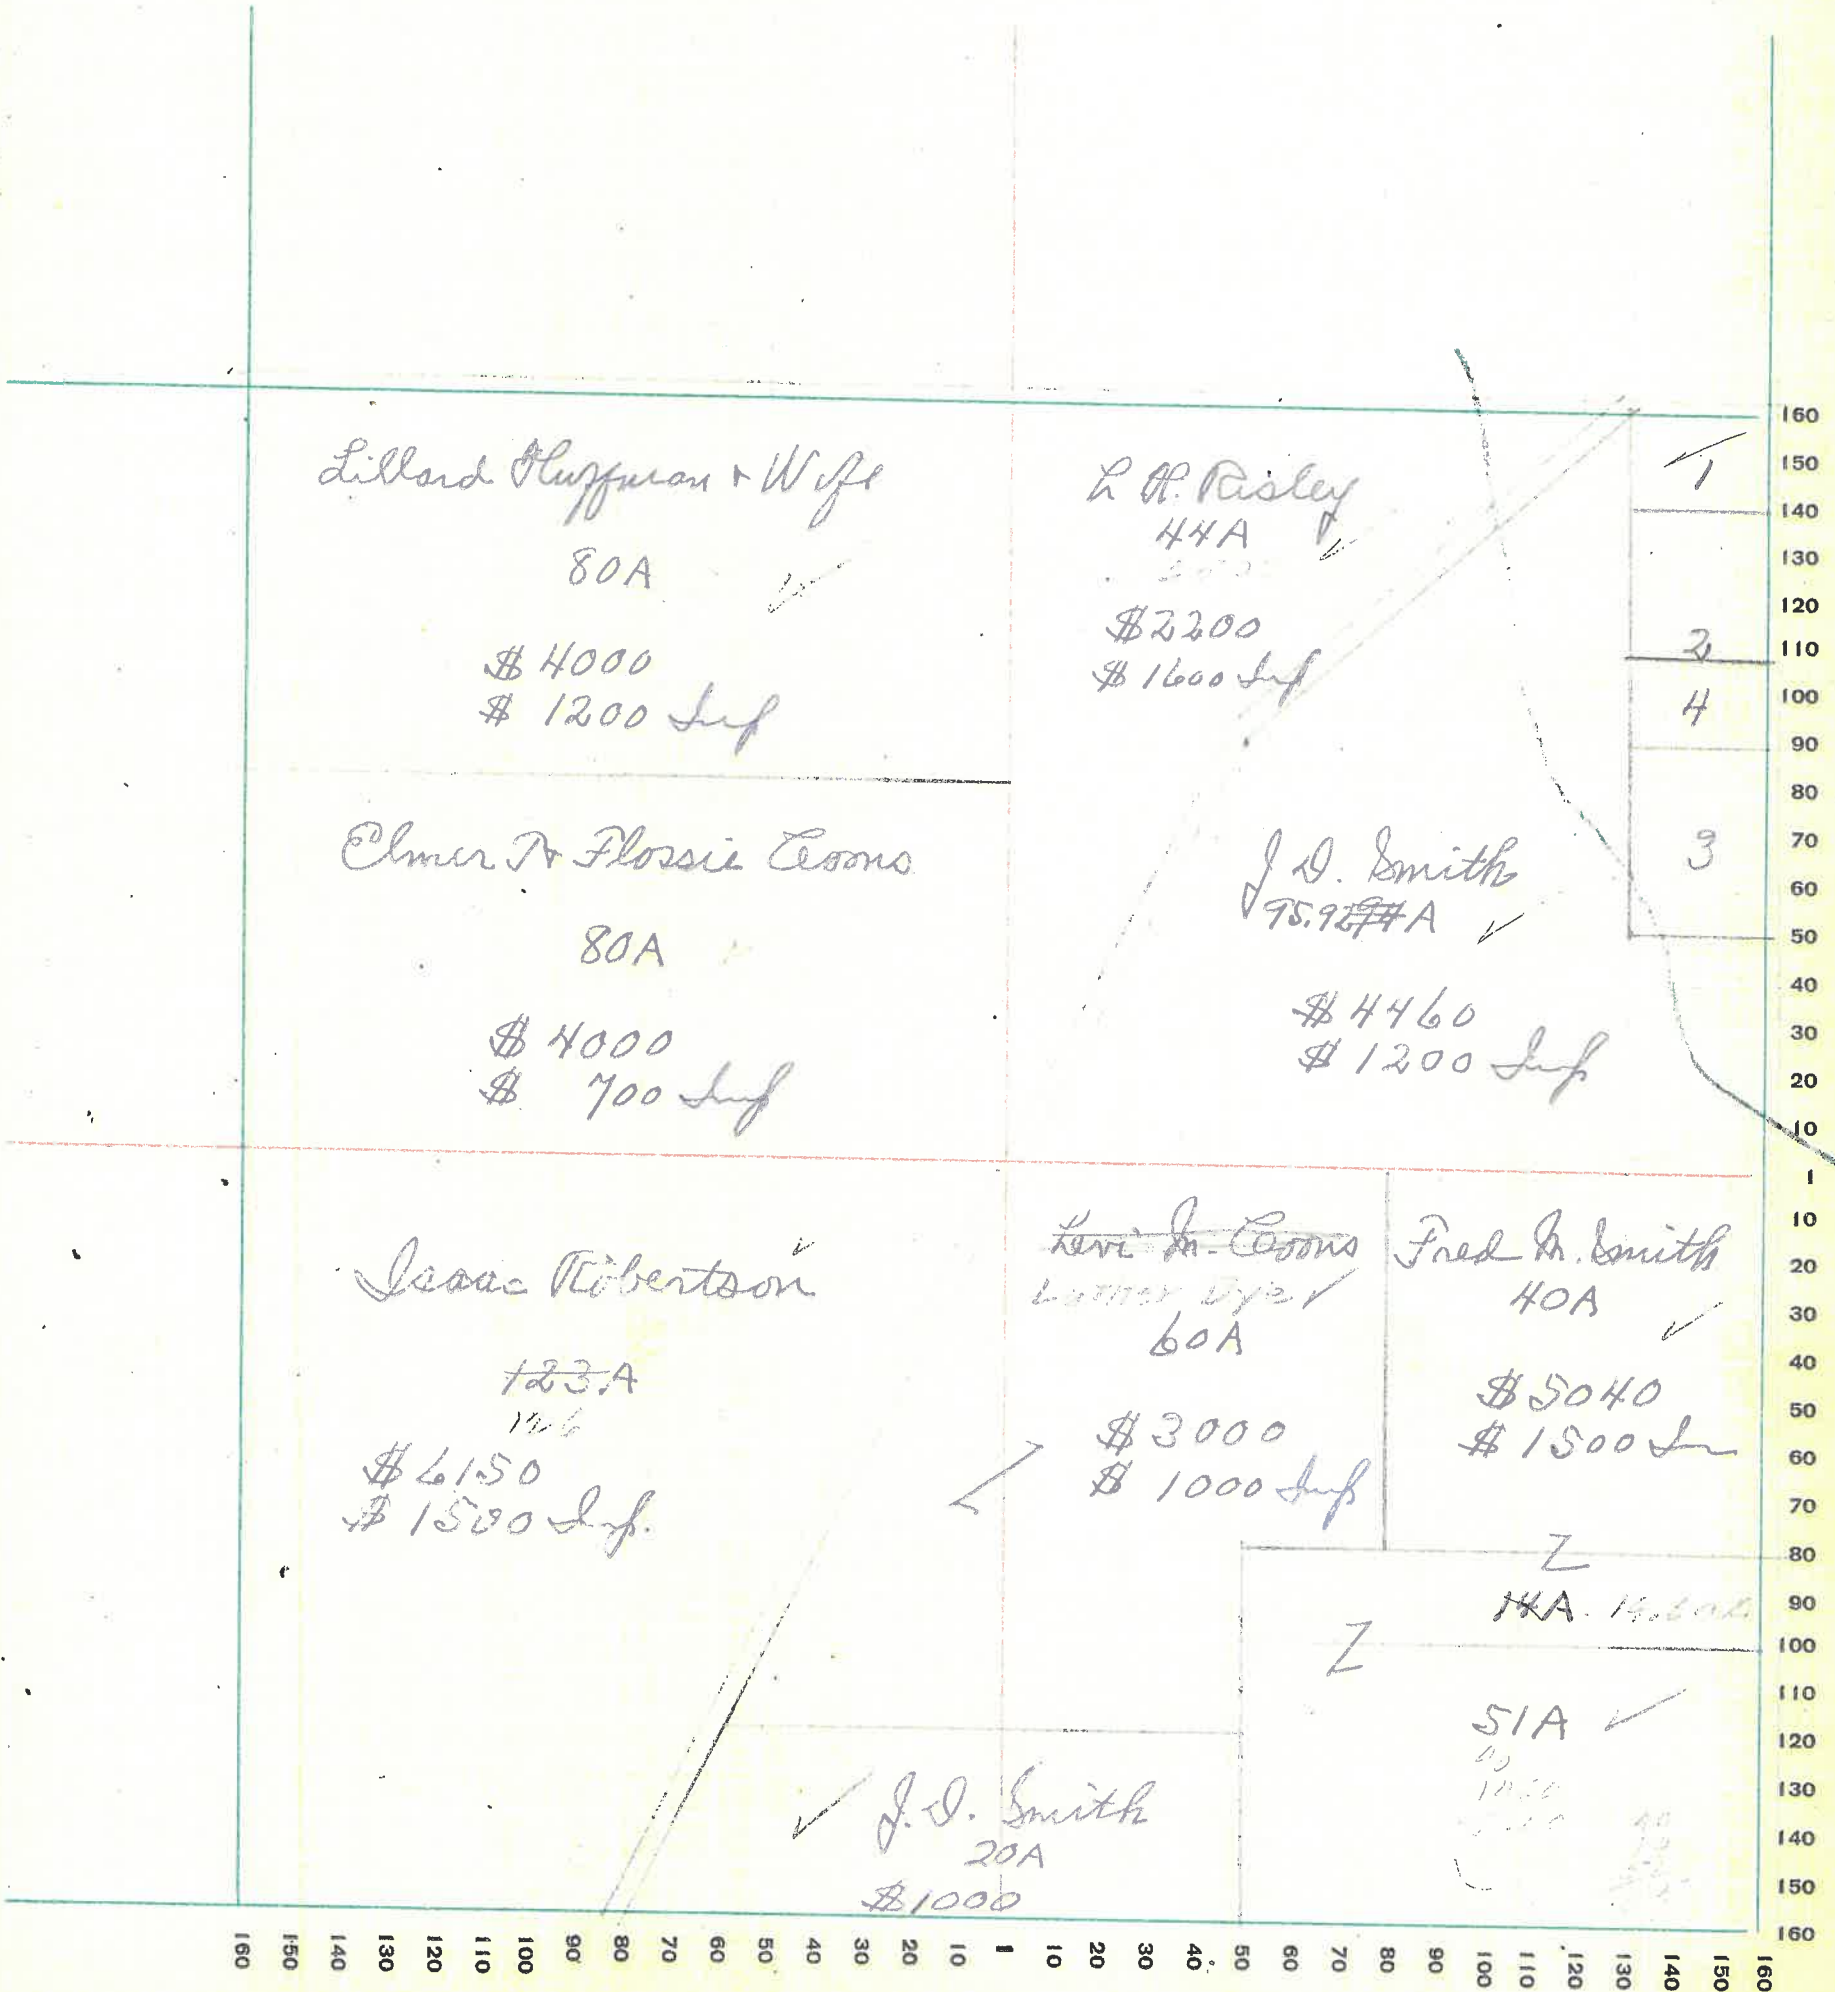 Lillard Huffman & Wife
80A
$4000
$1200 Imp
L R. Risley
44A
$2200
$1600 Imp
1
2
4
3
Elmer T & Flossie Coons
80A
$4000
$700 Imp
J D. Smith
95.92 A
$4460
$1200 Imp
Isaac Robertson
123.A
126
$6150
$1500 Imp.
Levi M. Coons
Luther Dye
60A
$3000
$1000 Imp
Fred M. Smith
40A
$5040
$1500 Im
Z
14A.
Z
51A
J.D. Smith
20A
$1000
160
150
140
130
120
110
100
90
80
70
60
50
40
30
20
10
1
10
20
30
40
50
60
70
80
90
100
110
120
130
140
150
160
160 150 140 130 120 110 100 90 80 70 60 50 40 30 20 10 1 10 20 30 40 50 60 70 80 90 100 110 120 130 140 150 160